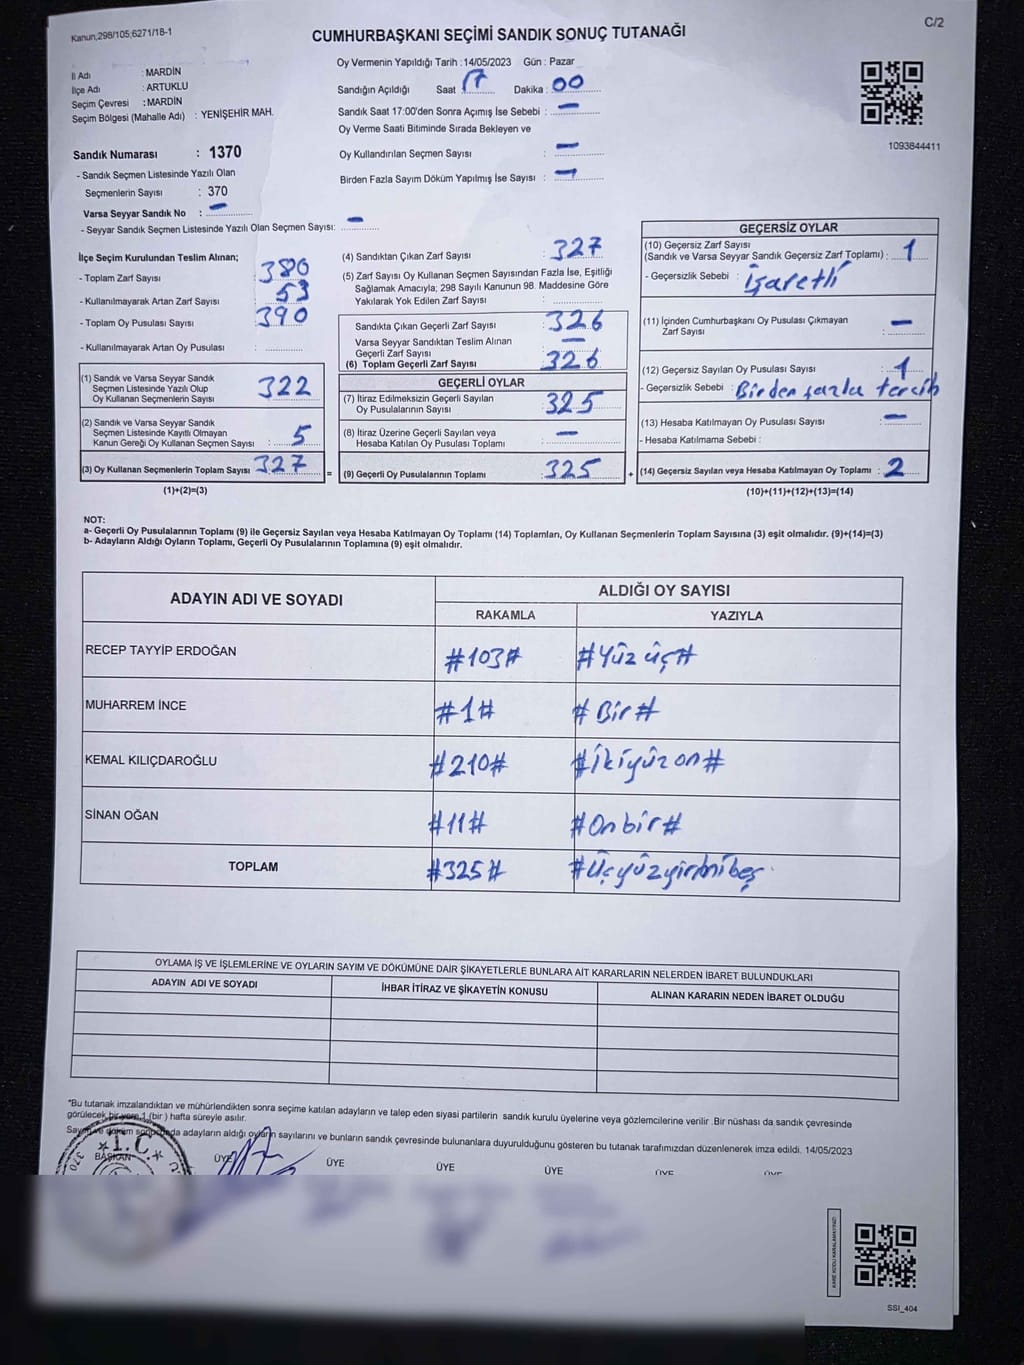 Kanun,298/105;6271/18-1
C/2
CUMHURBAŞKANI SEÇİMİ SANDIK SONUÇ TUTANAĞI
İl Adı : MARDİN
İlçe Adı : ARTUKLU
Seçim Çevresi : MARDİN
Seçim Bölgesi (Mahalle Adı) : YENİŞEHİR MAH.
Sandık Numarası : 1370
- Sandık Seçmen Listesinde Yazılı Olan
Seçmenlerin Sayısı : 370
Varsa Seyyar Sandık No : —
- Seyyar Sandık Seçmen Listesinde Yazılı Olan Seçmen Sayısı: —
Oy Vermenin Yapıldığı Tarih :14/05/2023 Gün : Pazar
Sandığın Açıldığı Saat 17 Dakika : 00
Sandık Saat 17:00'den Sonra Açımış İse Sebebi : —
Oy Verme Saati Bitiminde Sırada Bekleyen ve
Oy Kullandırılan Seçmen Sayısı : —
Birden Fazla Sayım Döküm Yapılmış İse Sayısı : —
1093844411
İlçe Seçim Kurulundan Teslim Alınan;
- Toplam Zarf Sayısı : 380
- Kullanılmayarak Artan Zarf Sayısı : 53
- Toplam Oy Pusulası Sayısı : 390
- Kullanılmayarak Artan Oy Pusulası :
(1) Sandık ve Varsa Seyyar Sandık
Seçmen Listesinde Yazılı Olup
Oy Kullanan Seçmenlerin Sayısı : 322
(2) Sandık ve Varsa Seyyar Sandık
Seçmen Listesinde Kayıtlı Olmayan
Kanun Gereği Oy Kullanan Seçmen Sayısı : 5
(3) Oy Kullanan Seçmenlerin Toplam Sayısı : 327
(1)+(2)=(3)
(4) Sandıktan Çıkan Zarf Sayısı : 327
(5) Zarf Sayısı Oy Kullanan Seçmen Sayısından Fazla İse, Eşitliği
Sağlamak Amacıyla; 298 Sayılı Kanunun 98. Maddesine Göre
Yakılarak Yok Edilen Zarf Sayısı :
Sandıkta Çıkan Geçerli Zarf Sayısı : 326
Varsa Seyyar Sandıktan Teslim Alınan
Geçerli Zarf Sayısı : —
(6) Toplam Geçerli Zarf Sayısı : 326
GEÇERLİ OYLAR
(7) İtiraz Edilmeksizin Geçerli Sayılan
Oy Pusulalarının Sayısı : 325
(8) İtiraz Üzerine Geçerli Sayılan veya
Hesaba Katılan Oy Pusulası Toplamı : —
= (9) Geçerli Oy Pusulalarının Toplamı : 325
GEÇERSİZ OYLAR
(10) Geçersiz Zarf Sayısı
(Sandık ve Varsa Seyyar Sandık Geçersiz Zarf Toplamı) : 1
- Geçersizlik Sebebi : İşaretli
(11) İçinden Cumhurbaşkanı Oy Pusulası Çıkmayan
Zarf Sayısı : —
(12) Geçersiz Sayılan Oy Pusulası Sayısı : 1
- Geçersizlik Sebebi : Birden fazla tercih
(13) Hesaba Katılmayan Oy Pusulası Sayısı : —
- Hesaba Katılmama Sebebi :
+ (14) Geçersiz Sayılan veya Hesaba Katılmayan Oy Toplamı : 2
(10)+(11)+(12)+(13)=(14)
NOT:
a- Geçerli Oy Pusulalarının Toplamı (9) ile Geçersiz Sayılan veya Hesaba Katılmayan Oy Toplamı (14) Toplamları, Oy Kullanan Seçmenlerin Toplam Sayısına (3) eşit olmalıdır. (9)+(14)=(3)
b- Adayların Aldığı Oyların Toplamı, Geçerli Oy Pusulalarının Toplamına (9) eşit olmalıdır.
ADAYIN ADI VE SOYADI
ALDIĞI OY SAYISI
RAKAMLA YAZIYLA
RECEP TAYYİP ERDOĞAN #103# #Yüz üç#
MUHARREM İNCE #1# #Bir#
KEMAL KILIÇDAROĞLU #210# #İkiyüz on#
SİNAN OĞAN #11# #Onbir#
TOPLAM #325# #Üçyüzyirmibeş
OYLAMA İŞ VE İŞLEMLERİNE VE OYLARIN SAYIM VE DÖKÜMÜNE DAİR ŞİKAYETLERLE BUNLARA AİT KARARLARIN NELERDEN İBARET BULUNDUKLARI
ADAYIN ADI VE SOYADI İHBAR İTİRAZ VE ŞİKAYETİN KONUSU ALINAN KARARIN NEDEN İBARET OLDUĞU
*Bu tutanak imzalandıktan ve mühürlendikten sonra seçime katılan adayların ve talep eden siyasi partilerin sandık kurulu üyelerine veya gözlemcilerine verilir .Bir nüshası da sandık çevresinde
görülecek bir yere 1 (bir ) hafta süreyle asılır.
Sayım ve döküm sonucunda adayların aldığı oyların sayılarını ve bunların sandık çevresinde bulunanlara duyurulduğunu gösteren bu tutanak tarafımızdan düzenlenerek imza edildi. 14/05/2023
T.C.
BAŞKAN ÜYE ÜYE ÜYE ÜYE ÜYE ÜYE
SSI_404